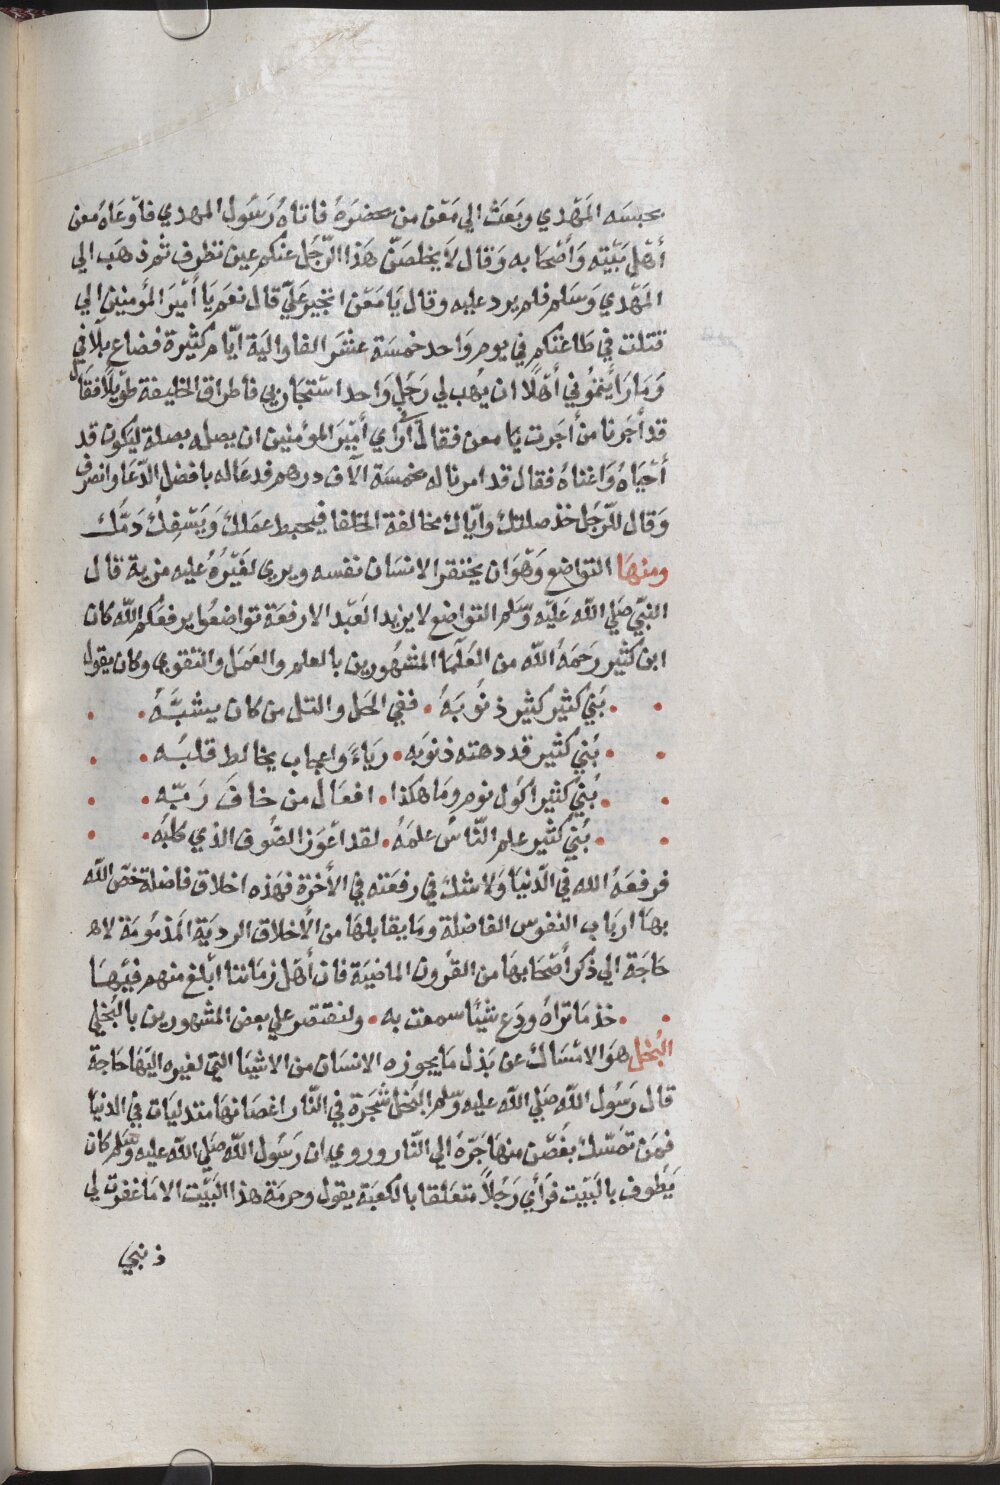 بحبسه المَهْدي وبَعَث الي مَعْن من يحضره فاتاهُ رَسُول المهدي فاوعَاهُ معن
أهْل بَيْته وَأصْحَابه وَقال لَا يخلصَنّ هَذا الرّجَل عنكم عين تطرف ثم ذهَب الي
المَهْدي وَسَلم فلم يرد عليه وقال يَا مَعْن اتجير عَليّ قال نعم يَا أمير المؤمنين اني
قتلت في طَاعتكم في يوم وَاحد خمسَة عشر الفا والية ايّام كثيرة فضاع بلآفي
وَمَا رَأيتمُوني أهْلا ان يُهب لي رَجَل وَاحد اسْتجَار بي فاطراق الخليفة طوَيلا فقال
قد أجَرنا من أجَرت يَا معن فقال أرأي أمير المؤمنين ان يصله بصلة ليكون قد
أحْيَاهُ وَاغناهُ فقال قد امرنا له بخمسَة آلآف درهم فدعَا له بافضل الدّعَا وانصرف
وَقال للرّجَل خذ صلتك وايّاك مخالفة الخلفا فيحبط عمَلك وَيَسْفِك دَمّك
ومنهَا التواضع وَهْوَان يحتقر الانسَان نفسه ويري لغَيْرُهُ عليه مزية قال
النبيّ صَلي الله عَليْه وسَلم التواضع لا يزيد العَبْد الارفعَة تواضعُوا يرفعَكم الله كان
ابن كثير رَحمَهُ الله من العَلمَا المشهُورين بالعلم والعمَل والتقوي وكان يقول
• • بَني كثير كثير ذنُوبَهُ • ففي الحَل والتل من كان يسُبَّهُ • •
• • بُني كثير قد دهته ذنوبَه • ريَاءً واعجاب يخالط قلبَه • •
• • بُني كثير اكُول نوم ومَا هكذا • افعَال من خافَ رَبّه • •
• • بُني كثير علم النّاسُ علمَهُ • لقد اعْوَز الصُوف الذي كلبَه • •
فرفعَهُ الله في الدّنيَا وَلا شك في رفعَته في الأخرة فهَذه اخلاق فاضلة خصّ الله
بهَا اربَاب النفوس الفاضلة ومَا يقابلهَا من الأخلاق الرديَة المَذمُومَة لاهـ
حَاجَة الي ذكر أصْحَابهَا من القرُون الماضيَة فان أهْل زمَاننا ابْلغ منهم فيَهَا
• • خذ مَا تراهُ ودَع شيئا سمعت به • ولنقتصر علي بعض المشهورين بالبُخلي
البُخل هوَ الامْسَاك عن بَذل مَا يحوزه الانسَان من الاشيَا التي لغيره اليَهَا حَاجَة
قال رَسُول الله صَلي الله عليه وسّلم البُخل شجَرة في النّار اغصَانهَا متدليَات في الدنيَا
فمَن تمسّك بغُصَّن منهَا جَرّهُ الي النّار وروي ان رَسُول الله صَلي الله عليه وسَلم كان
يَطُوف بالبَيْت فرَأي رَجُلاً متعَلقا بالكعبَة يقول وحرمَة هذا البَيْت الا مَا غفرت لي
ذنبي